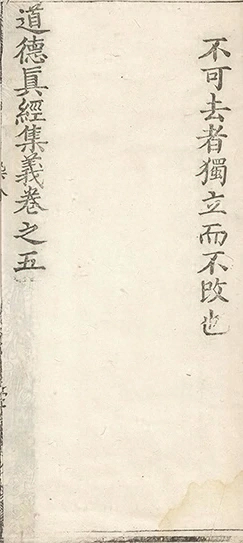 不可去者獨立而不改也
道德眞經集義卷之五